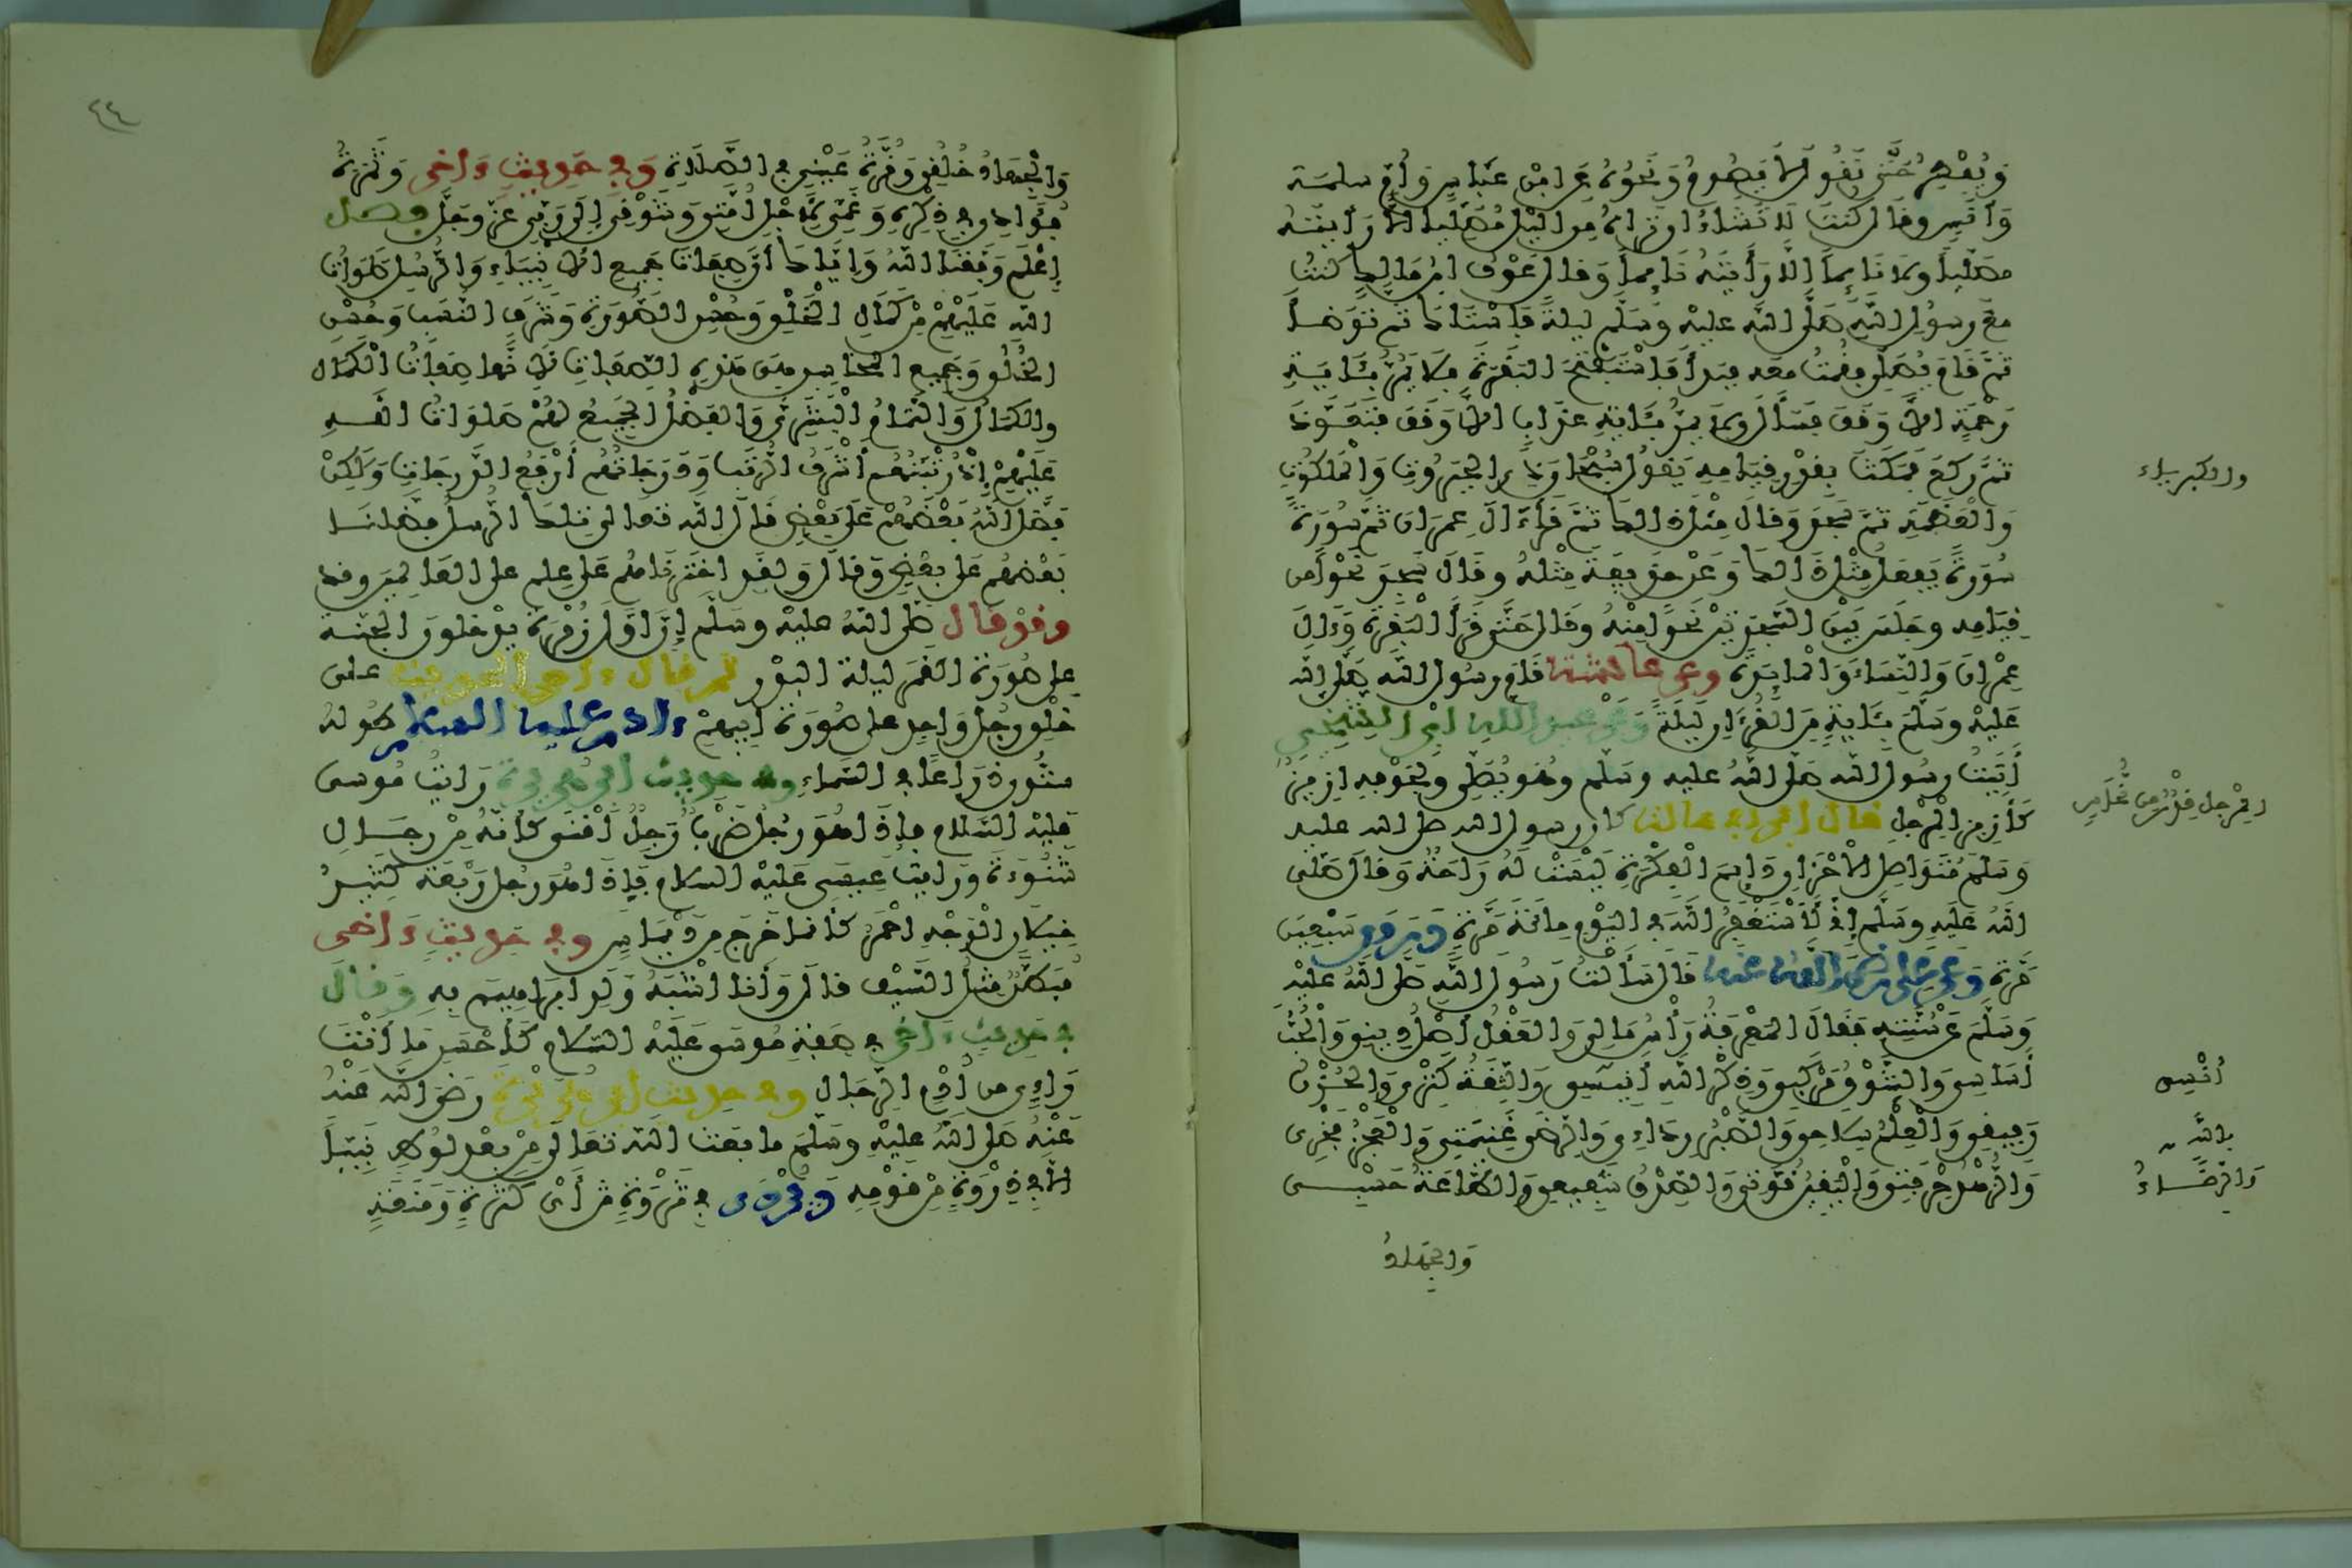 وَيُفْطِرُ حَتَّى نَقُولَ لَا يَصُومُ وَنَحْوُهُ عَنِ ابْنِ عَبَّاسٍ وَأُمِّ سلمة
وَأَنَسٍ وقال كُنتَ لَا تَشَاءُ ان تراه مِنَ اليْلِ مُصَلِّيا الَّا رَأَيْتَه
مصَلِّياً ولا نَائِماً الَّا رَأَيْتَهُ نَائِماً وَقال عَوْفُ ابنُ مَالِكٍ كنتُ
معَ رسُولِ اللَّهِ صَلَّى اللَّه عليْه وَسَلَّم ليلةً فَاسْتَاكَ ثم توَضأ
ثمَّ قَامَ يُصَلِّي فقُمْتُ معه فبدأ فَاسْتَفْتَحَ البَقَرَةَ فلا يَمُرُّ بئَايةِ
رَحْمَةٍ الاَّ وَقَفَ فسَأل وَلا يمُرُّ بئَايَةِ عَذَابٍ الاَّ وَقَفَ فتَعَوَّذَ
ثمَّ رَكَعَ فَمَكَثَ بقَدْرِ قِيَامِه يَقولُ سُبْحَانَ ذِي الجَبَرُوتِ وَالْمَلَكُوتِ
والكبرياء
وَالْعَظَمَةِ ثمَّ سَجَدَ وَقالَ مِثْلَ ذَالكَ ثمَّ قَرَأَ ءَالَ عِمرَانَ ثمَّ سُورَةً
سُورَةً يَفعَلُ مِثْلَ ذَالكَ وَعَنْ حُذَيفَةَ مِثْلُهُ وقَالَ سَجَدَ نَحْواً من
قِيَامِه وجَلَسَ بَيْنَ السَّجْدَتَيْنِ نَحْواً مِنْهُ وقال حَتَّى قَرَأَ الْبَقَرَةَ وَءَالَ
عِمْرَانَ وَالنِّسَاءَ وَالْمَائِدَةَ وعن عائشة قَامَ رسُولُ اللَّه صَلَّى الله
عَلَيْهِ وسَلَّمَ بئَايةٍ مِنَ الْقُرْءَانِ لَيْلَةً وَعَنْ عَبدِ اللهِ ابْنِ الشِّخِّيرِ
أَتَيْتُ رسُولَ اللَّه صَلَّى اللَّهُ عليه وسَلَّم وهُو يُصَلِّي وَلِجَوْفِهِ أَزِيزٌ
كَأَزِيزِ الْمِرْجَلِ قال ابن ابي هالة كان رسول الله صلى الله عليه
المِرْجل قِدْرٌ من نُحَاسٍ
وَسَلَّمَ مُتَوَاصِلَ الأَحْزَانِ دَائِمَ الْفِكْرَةِ لَيْسَتْ لَهُ رَاحَةٌ وَقالَ صَلَّى
اللَّهُ عَلَيهِ وسَلَّم إِنِّي لَأَسْتَغْفِرُ اللَّهَ في اليَوْمِ مِائَةَ مَرَّةٍ وَرُوِيَ سَبْعِينَ
مَرَّة وَعَن عَلي رَضِيَ اللَّهُ عَنه قَالَ سَأَلْتُ رَسُولَ اللَّهِ صَلَّى اللَّهُ عَلَيْهِ
وَسَلَّمَ عَنْ سُنَّتِهِ فَقَالَ المَعْرِفَةُ رَأْسُ مَالِي وَالعَقْلُ أَصْلُ دِينِي وَالْحُبُّ
أَسَاسِي وَالشَّوْقُ مَرْكَبِي وَذِكْرُ اللَّهِ أَنِيسِي وَالثِّقَةُ كَنْزِي وَالحُزْنُ
أُنْسِي
رَفِيقِي وَالْعِلْمُ سِلَاحِي وَالصَّبْرُ رِدَاءِي وَالرِّضَى غَنِيمَتِي وَالْعَجْزُ فَخْرِي
بِاللَّهِ
وَالزُّهْدُ حِرْفَتِي وَالْيَقِينُ قُوَّتِي وَالصِّدْقُ شَفِيعِي وَالطَّاعَةُ حَسْبِي
وَالرِّضَاءُ
وَالجهَادُ
٤٤
وَالْجِهَادُ خُلُقِي وَقُرَّةُ عَيْنِي في الصَّلَاةِ وَفي حَدِيثٍ ءَاخَر وَثَمَرَةُ
فُؤَادِي في ذِكْرِهِ وَغَمِّي لِأَجْلِ أُمَّتِي وَشَوْقِي إِلَى رَبِّي عَزَّ وَجَلَّ فصل
إِعْلَمْ وَفَّقَنَا اللَّهُ وَإِيَّاكَ أَنَّ صِفَاتِ جَمِيعِ الأَنْبِيَاءِ وَالرُّسُلِ صَلَوَاتُ
اللَّهِ عَلَيْهِمْ مِنْ كَمَالِ الْخَلْقِ وَحُسْنِ الصُّورَةِ وَشَرَفِ النَّسَبِ وَحُسْنِ
الخُلُقِ وَجَمِيعِ المَحَاسِنِ هِيَ هَذِهِ الصِّفَاتُ لِأَنَّهَا صِفَاتُ الْكَمَالِ
وَالكَمَالُ وَالتَّمَامُ الْبَشَرِيُّ وَالفَضْلُ الْجَمِيعُ لَهُمْ صَلَوَاتُ الله
عَلَيْهِمْ إِذْ رُتْبَتُهُمْ أَشْرَفُ الرُّتَبِ وَدَرَجَاتُهُم أَرْفَعُ الدَّرَجَاتِ وَلَكِنْ
فَضَّلَ اللَّهُ بَعْضَهُمْ عَلَى بَعْضٍ قَالَ اللَّه تعالى تِلكَ الرُّسلُ فَضَّلنَا
بَعْضَهُم عَلَى بَعْضٍ وَقَالَ وَلَقَدِ اخْتَرْنَاهُم عَلَى عِلمٍ على العَالَمِينَ وقد
وقد قال صلى اللَّهُ عليْه وسَلَّم إِنَّ أَوَّلَ زُمْرَةٍ يَدْخلونَ الجَنَّة
على صُورَة القَمَرِ ليلة البَدْر ثم قال ءاخر الحديث على
خَلْقِ رجُلٍ وَاحِدٍ على صُورَة أَبِيهِمْ ءادم عليه السلام طُولُهُ
ستُّونَ ذِرَاعًا في السَّمَاءِ وفي حديث أبي هريرة رَايْتُ مُوسى
عَلَيْهِ السَّلَام فإِذَا هُوَ رَجُلٌ ضَرْبٌ رَجِلٌ أَقْنَى كَأَنَّهُ مِنْ رجَالِ
شَنُوءَةَ وَرَايتُ عِيسَى عَلَيْهِ السلام فَإِذَا هُوَ رجُل رَبْعَة كَثِيرُ
خِيلَانِ الْوَجْهِ أَحْمَرُ كَأَنمَا خَرَجَ مِنْ دِيمَاسٍ وفي حَدِيثٍ ءَاخر
مُبَطَّنٌ مِثْلُ السَّيْفِ قالَ وَأَنَا أَشْبَهُ وَلَدِ إِبْرَاهِيمَ بِهِ وَقَالَ
في حَدِيثٍ ءَاخَر في صِفَةِ مُوسَى عَلَيْهِ السَّلَام كَأَحْسَنِ مَا أَنْتَ
رَاءٍ من أُدْمِ الرِّجَال وفي حديث أبي هُرَيْرَة رَضِيَ اللَّه عَنْهُ
عَنْهُ صَلَّى اللَّهُ عليْهِ وسَلَّمَ ما بَعَثَ اللَّهُ تَعَالَى مِنْ بَعْدِ لُوطٍ نَبِيًّا
الَّا فِي ذِرْوَةٍ مِنْ قَوْمِهِ وَيُرْوَى في ثَرْوَةٍ مِّنْ أَيْ كَثْرَةٍ وَمَنَعَةٍ